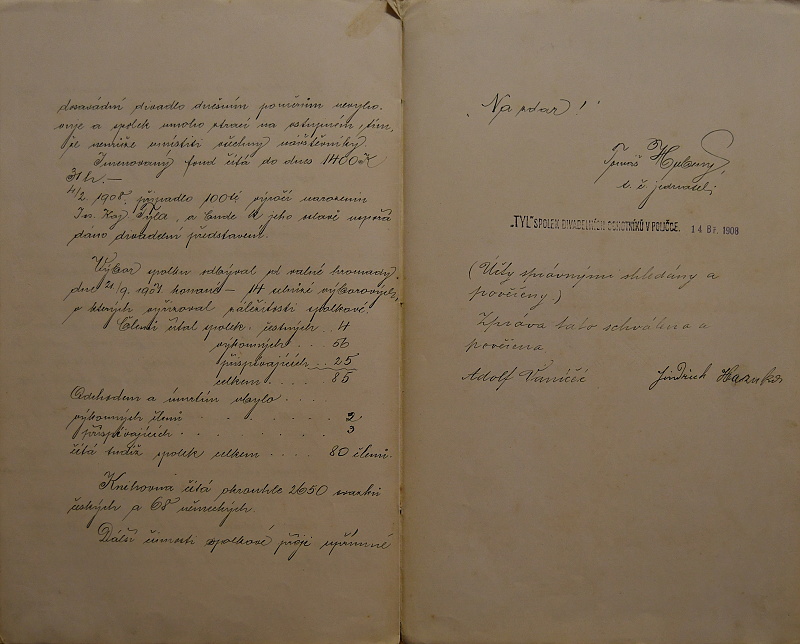 dosavádní divadlo dnešním poměrům nevyho-
vuje a spolek mnoho ztrácí na vstupném, tím,
že nemůže umístiti všechny návštěvníky.
Jmenovaný fond čítá do dnes 1400 K
31 h. —
4/2. 1908 připadlo 100té výročí narozenin
Jos. Kaj. Tyla, a bude k jeho oslavě uspořá
dáno divadelní představení.
Výbor spolku odbýval od valné hromady
dne 21/9. 1907 konané — 14 schůzí výborových,
v kterých vyřizoval záležitosti spolkové.
Členů čítal spolek: čestných .. 4
výkonných ... 56
přispívajících .. 25
celkem .... 85
Odchodem a úmrtím ubylo ....
výkonných členů 2
přispívajících 3
čítá tudíž spolek celkem .... 80 členů.
Knihovna čítá okrouhle 2650 svazků
českých a 68 německých.
Další činnosti spolkové přeje upřímné
„Na zdar!"
Tomáš
t. č. jednatel.
„TYL" SPOLEK DIVADELNÍCH OCHOTNÍKŮ V POLIČCE. 14 BŘ. 1908
(Účty správnými shledány a
pověřeny)
Zpráva tato schválena a
pověřena
Adolf Vaníček Jindřich